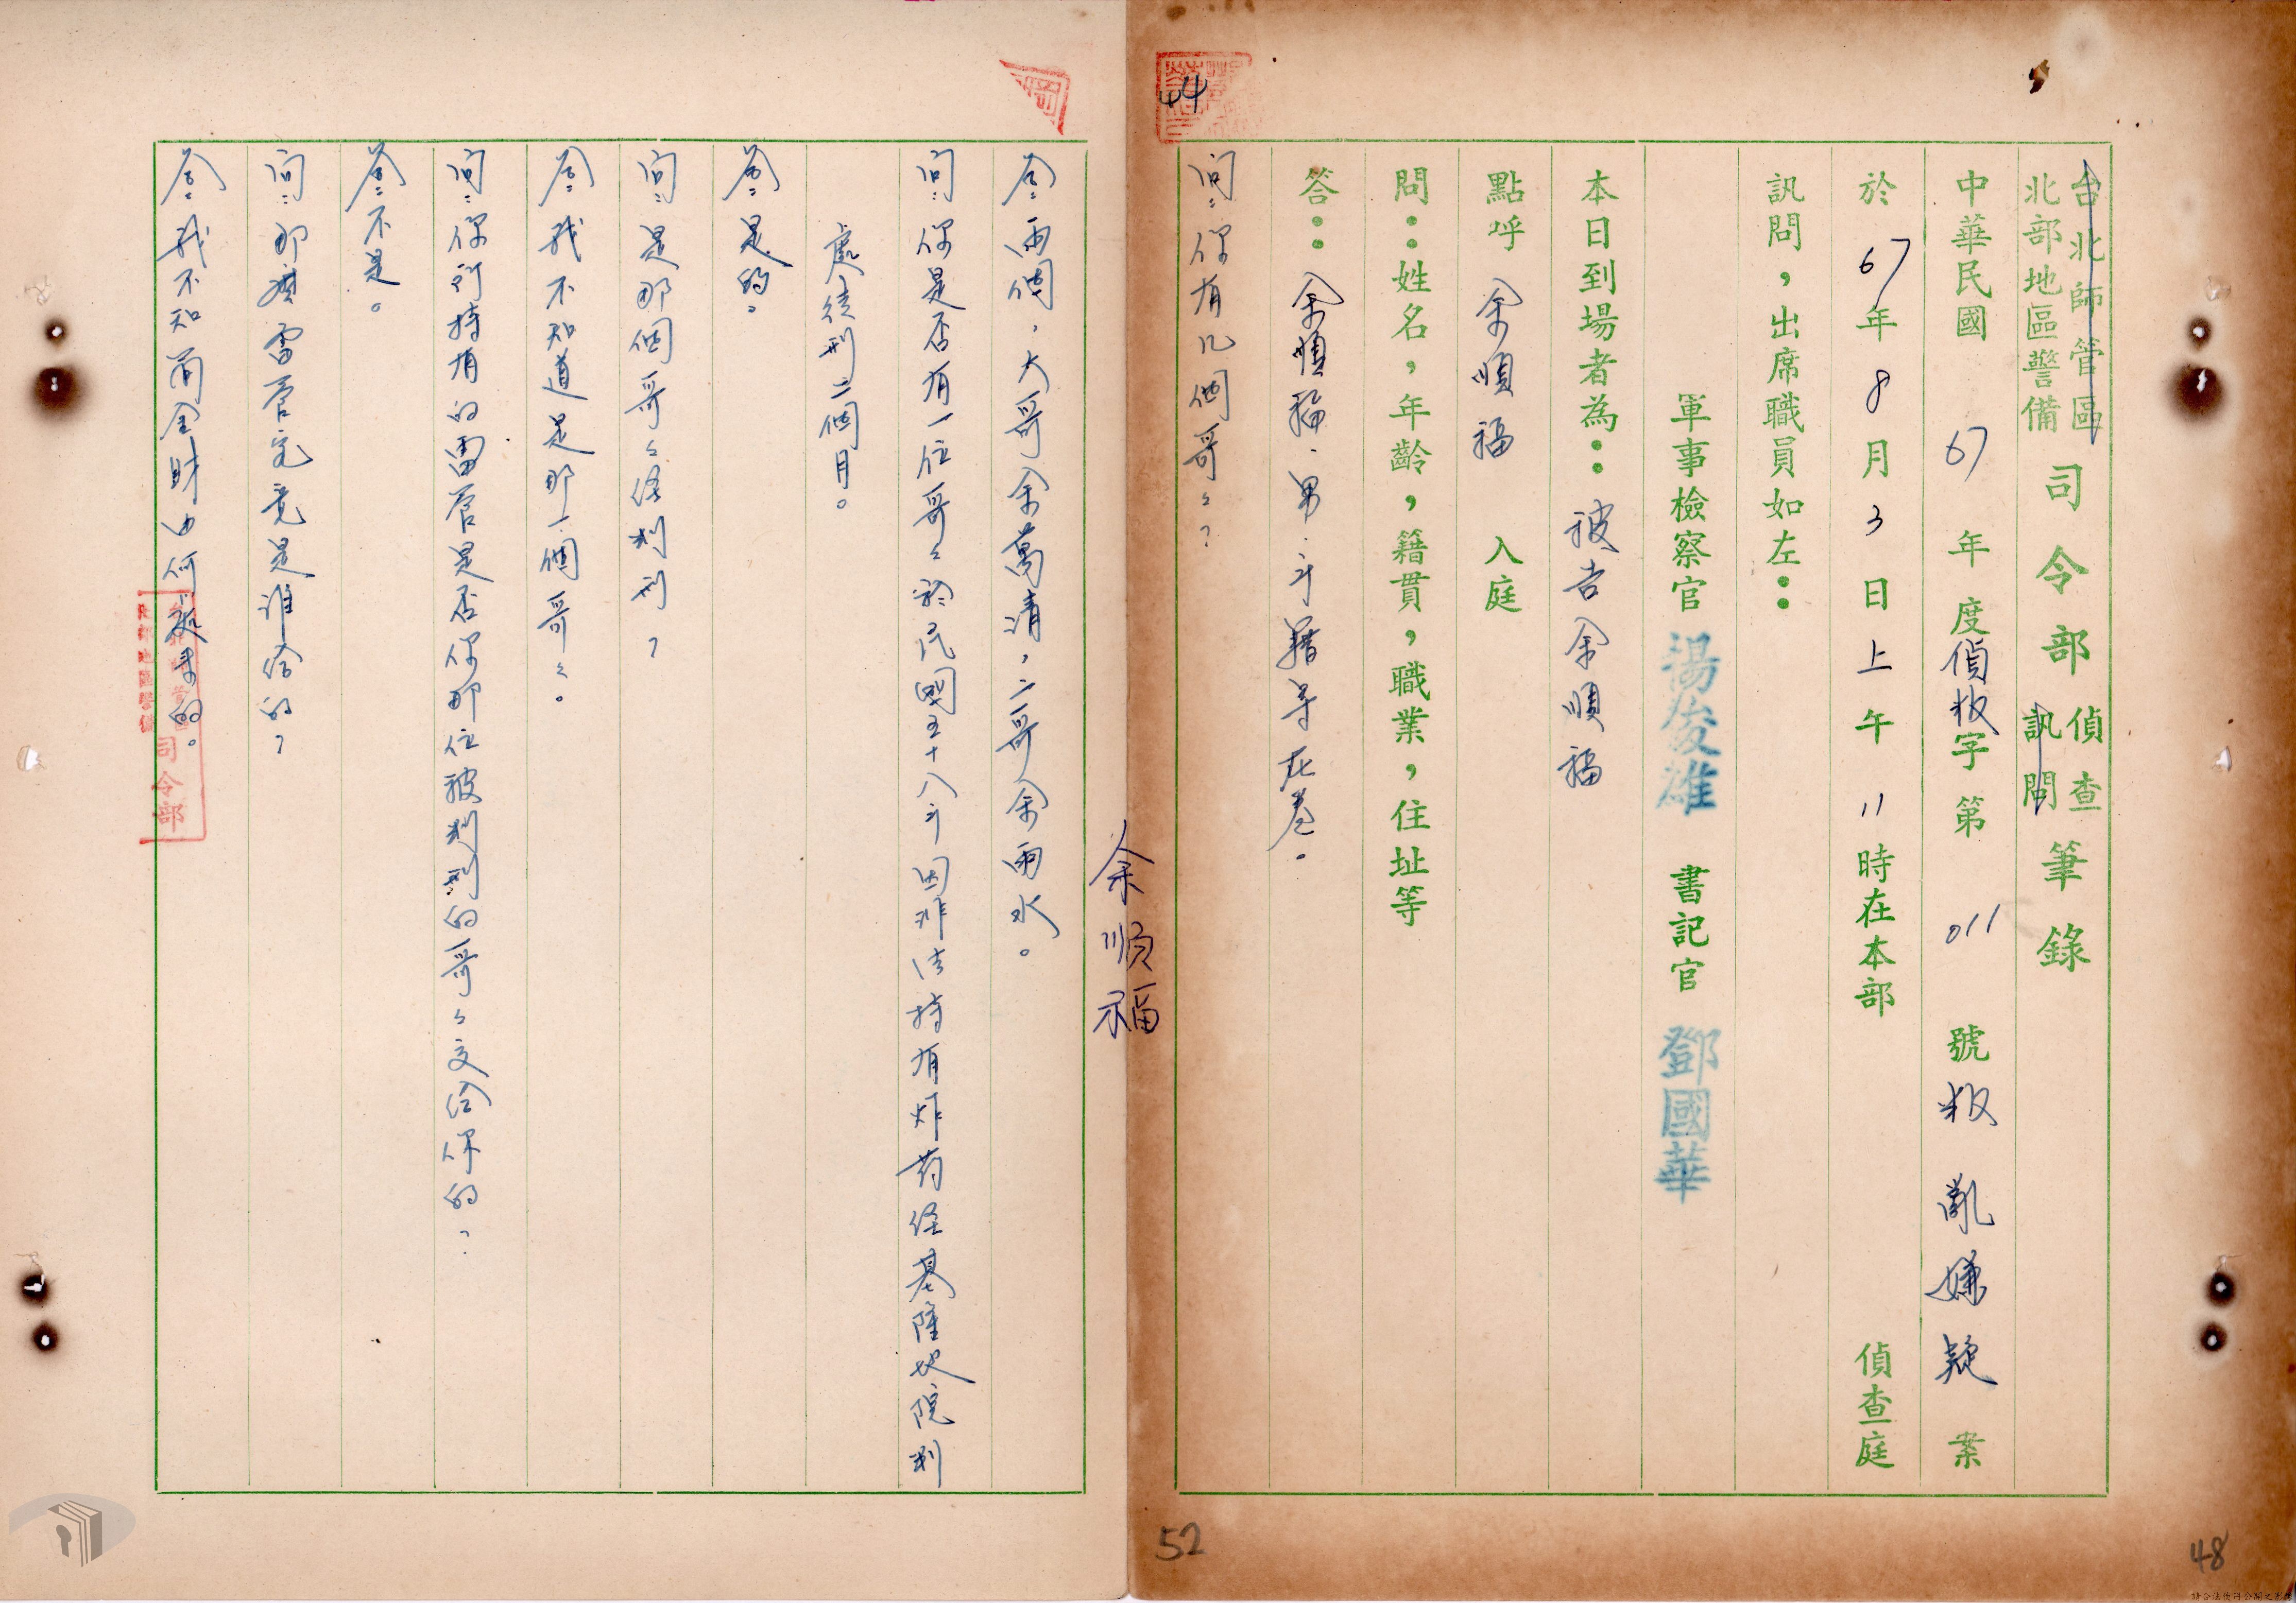 台北師管區
北部地區警備
司令部
偵查
訊問
筆錄
中華民國 67 年度偵叛字第 011 號叛亂嫌疑案
於 67 年 8 月 3 日上午 11 時在本部 偵查庭
訊問，出席職員如左：
軍事檢察官 湯俊雄 書記官 鄧國華
本日到場者為：被告余順福
點呼 余順福 入庭
問：姓名，年齡，籍貫，職業，住址等
答：余順福．男．年籍等在卷。
問：你有几個哥々？
44
余順福
答：兩個，大哥余萬清，二哥余雨水。
問：你是否有一位哥々於民國五十八年因非法持有炸药经基隆地院判
處徒刑二個月。
答：是的。
問：是那個哥々经判刑？
答：我不知道是那一個哥々。
問：你所持有的雷管是否你那位被判刑的哥々交给你的？
答：不是。
問：那麼雷管究竟是谁给的？
答：我不知雨全財由何處來的。
北部地區警備
司令部
52
48
請合法使用公開之影